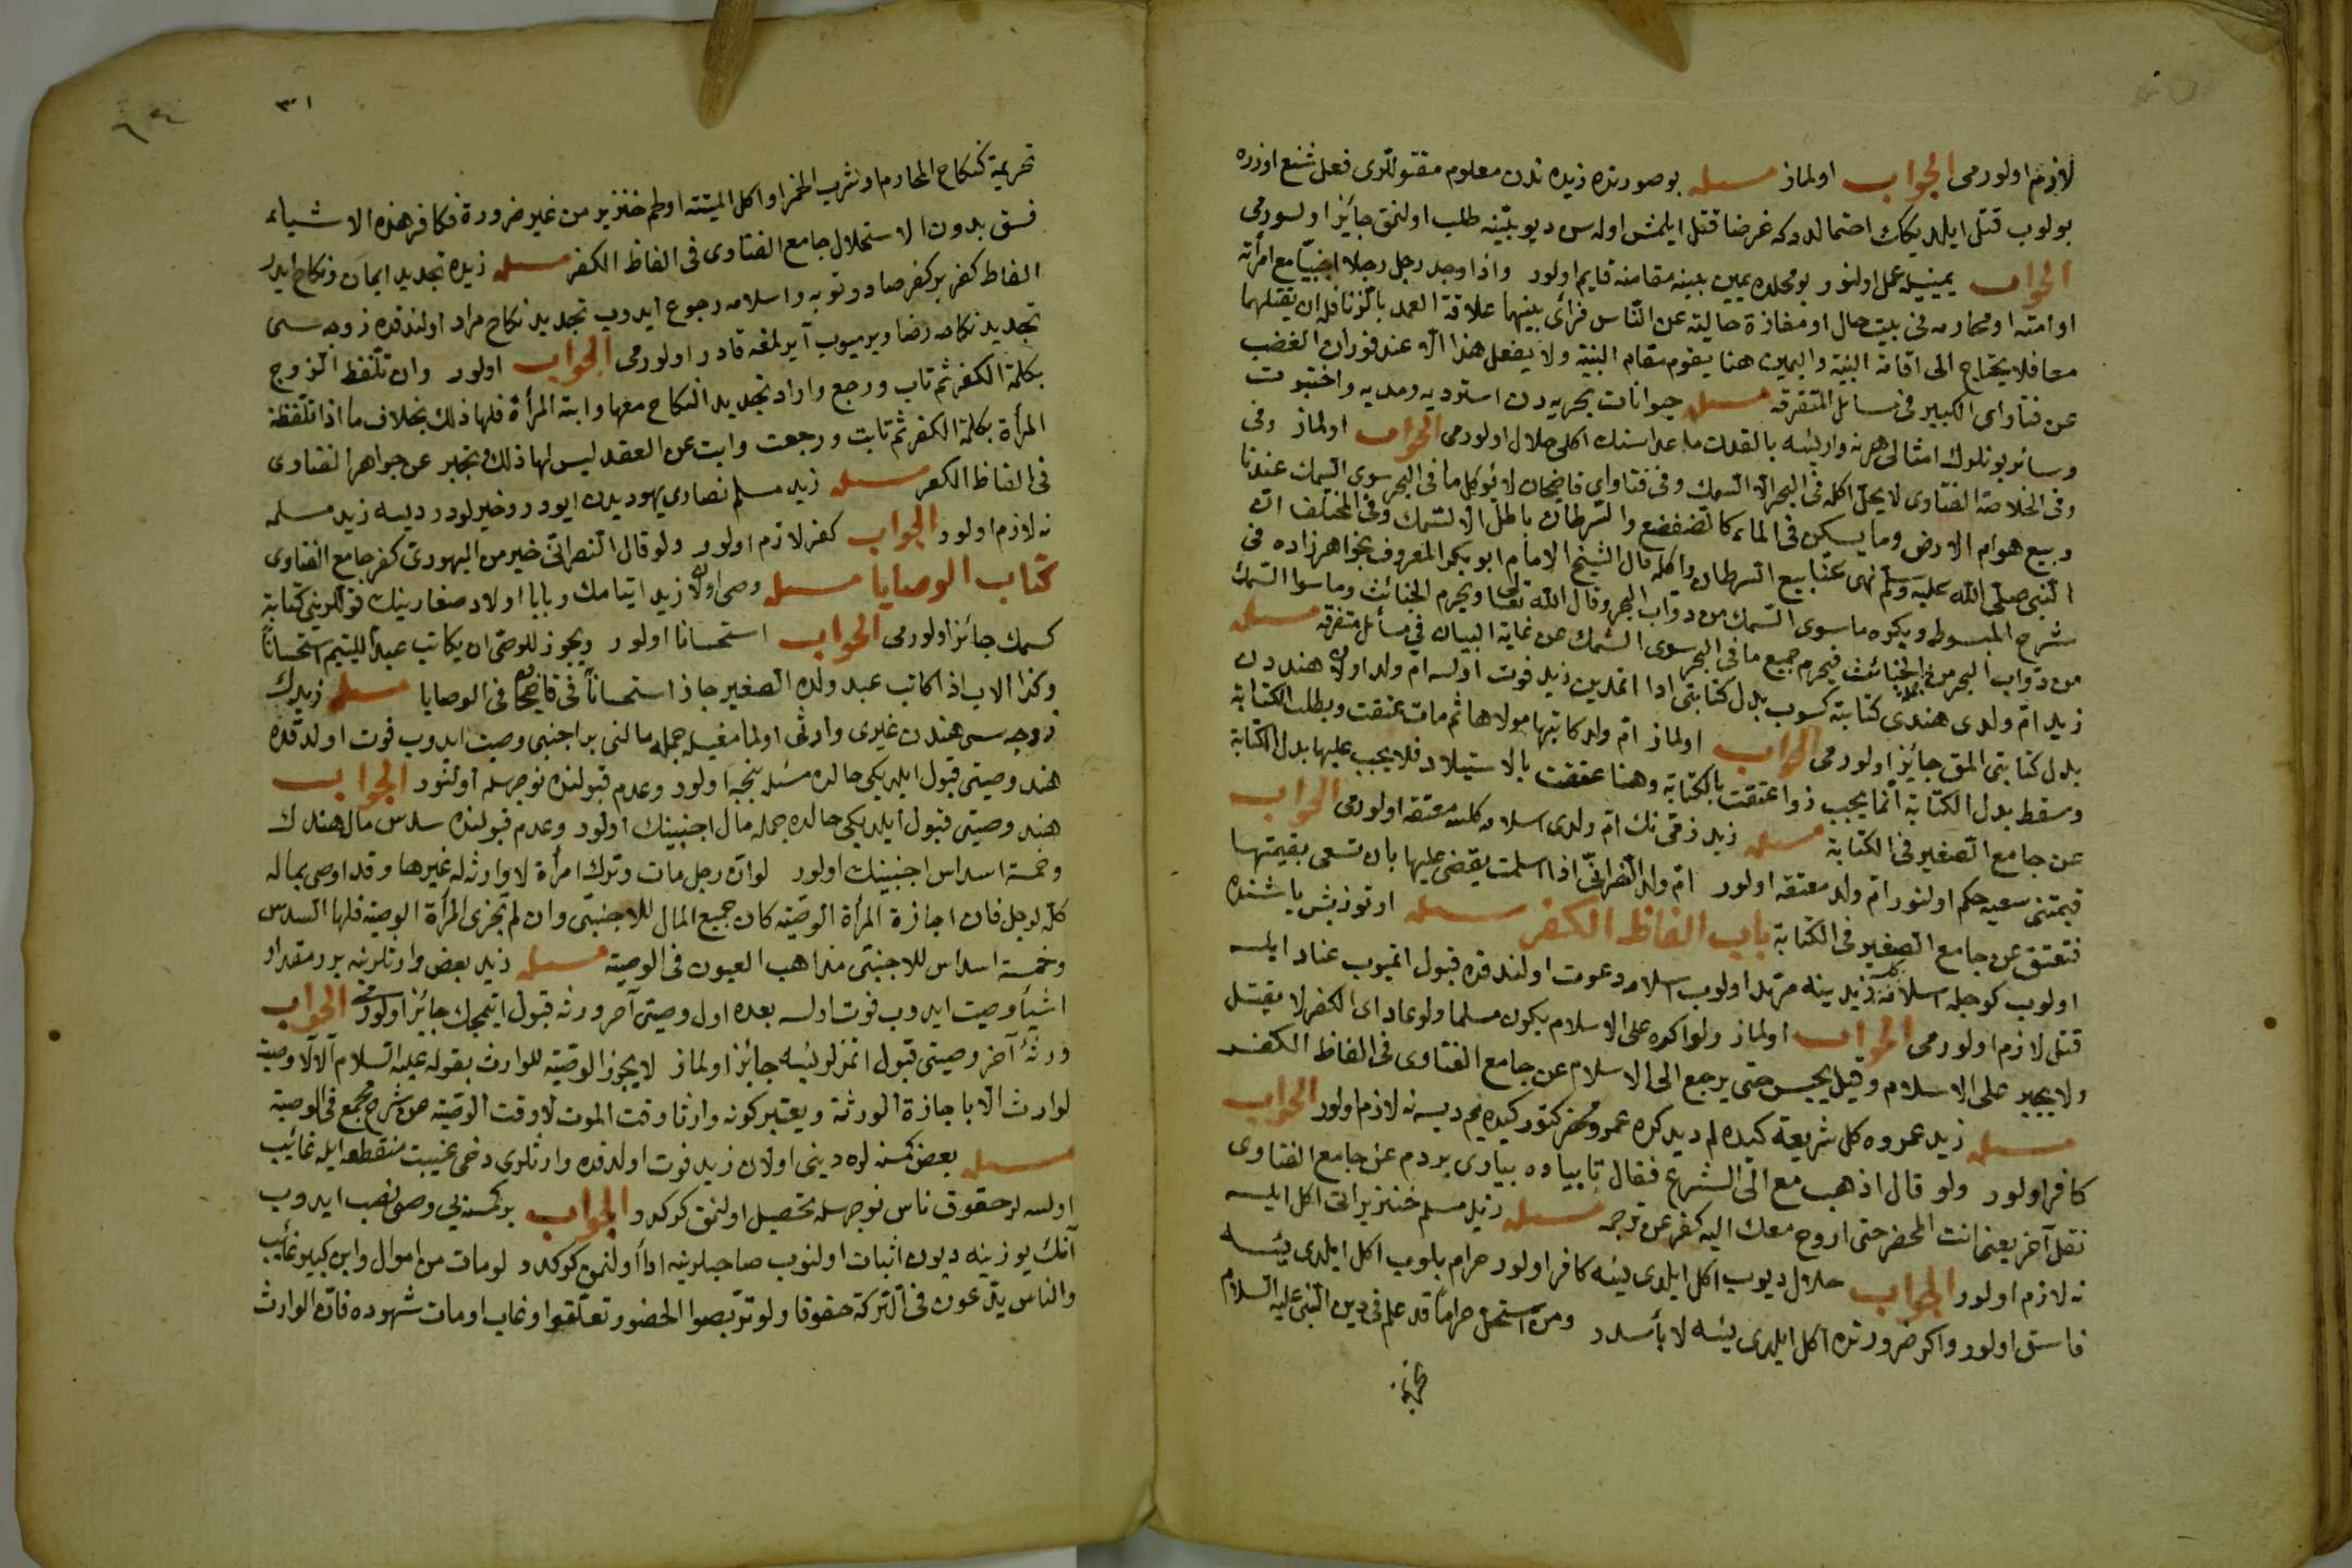 لازم اولورمى الجواب اولماز مسئله بوصورتده زيده ندن معلوم مقتوللرى فعل شنيع اوزره
بولوب قتل ايلديكك احتمالدر كه غرضا قتل ايلمش اوله سن ديو بينه طلب اولنمق جايز اولورمى
الجواب يمينيله عمل اولنور بومحلده يمين بينه مقامنه قايم اولور واذا وجد رجل رجلا اجنبيا مع امرأته
او امته او محارمه فى بيت خال او مفازة خالية عن الناس فرأى بينهما علاقة العمد بالزنا فله ان يقتلهما
معا فلا يحتاج الى اقامة البينة واليمين هنا يقوم مقام البينة ولا يفعل هذا الا عند فوران الغضب
عن فتاواى الكبير فى مسائل المتفرقه مسئله حيوانات بحريه دن استرديه ومديه واختبوت
وسائر بونلرك امثالى هر نه وار ايسه بالقدن ماعداسنك اكلى حلال اولورمى الجواب اولماز وفى
وفى الخلاصة الفتاوى لا يحل اكله فى البحر الا السمك وفى فتاواى قاضيخان لا يؤكل ما فى البحر سوى السمك عندنا
وبيع هوام الارض وما يسكن فى الماء كالضفضع والسرطان باطل الا السمك وفى المختلف ان
النبى صلى الله عليه وسلم نهى عن بيع السرطان واكله قال الشيخ الامام ابو بكر المعروف بخواهرزاده فى
شرح المبسوط ويكره ما سوى السمك من دواب البحر وقال الله تعالى ويحرم الخبائث وما سوا السمك
من دواب البحر من الخبائث فيحرم جميع ما فى البحر سوى السمك عن غاية البيان فى مسائل متفرقه مسئله
زيد ام ولدى هندى كتابته كسوب بدل كتابتى ادا اتمدين زيد فوت اولسه ام ولد اولان هنددن
بدل كتابتى المق جائز اولورمى الجواب اولماز ام ولد كاتبها مولاها ثم مات عتقت وبطلت الكتابة
وسقط بدل الكتابة انما يجب اذا عتقت بالكتابة وهنا عتقت بالاستيلاد فلا يجب عليها بدل الكتابة
عن جامع الصغير فى الكتابة مسئله زيد ذمى نك ام ولدى اسلامه كلسه معتقه اولورمى الجواب
قيمتنى سعيه حكم اولنور ام ولد معتقه اولور ام ولد النصرانى اذا اسلمت يقضى عليها بان تسعى بقيمتها
فتعتق عن جامع الصغير فى الكتابة باب الفاظ الكفر مسئله اوتوزبش ياشنده
اولوب كوجله اسلامه زيد ينه مرتد اولوب اسلامه دعوت اولندقده قبول اتميوب عناد ايلسه
قتل لازم اولورمى الجواب اولماز ولو اكره على الاسلام يكون مسلما ولو عاد الى الكفر لا يقتل
ولا يجبر على الاسلام وقيل يحبس حتى يرجع الى الاسلام عن جامع الفتاوى فى الفاظ الكفر
مسئله زيد عمروه كل شريعته كيده لم ديدكده عمرو محضر كتور كيده يم ديسه نه لازم اولور الجواب
كافر اولور ولو قال اذهب مع الى الشرع فقال تا بياده بياورى بردم عن جامع الفتاوى
نقل آخر يعنى انت المحضر حتى اروح معك اليه كفر عن ترجمه مسئله زيد مسلم خنزير اتى اكل ايلسه
نه لازم اولور الجواب حلال ديوب اكل ايلدى يسه كافر اولور حرام بلوب اكل ايلدى يسه
فاسق اولور واكر ضرورتده اكل ايلدى يسه لا بأسدر ومن استحل حراما قد علم فى دين النبى عليه السلام
تحريمه
٣١
تحريمه كنكاح المحارم او شرب الخمر او اكل الميتة او لحم خنزير من غير ضرورة فكافر هذه الاشياء
فسق بدون الاستحلال جامع الفتاوى فى الفاظ الكفر مسئله زيده تجديد ايمان ونكاح ايدر
الفاظ كفر بر كفر صادر وتوبه واسلامه رجوع ايدوب تجديد نكاح مراد اولندقده زوجه سى
تجديد نكاحه رضا ويرميوب آيرلمغه قادر اولورمى الجواب اولور وان تلفظ الزوج
بكلمة الكفر ثم تاب ورجع واراد تجديد النكاح معها وابت المرأة فلها ذلك بخلاف ما اذا تلفظة
المرأة بكلمة الكفر ثم تابت ورجعت وابت عن العقد ليس لها ذلك وتجبر عن جواهر الفتاوى
فى الفاظ الكفر مسئله زيد مسلم نصارى يهوديدن ايودر وخيرلودر ديسه زيد مسلمه
نه لازم اولور الجواب كفر لازم اولور ولو قال النصرانى خير من اليهودى كفر جامع الفتاوى
كتاب الوصايا مسئله وصى اولان زيد ايتامك وبابا اولاد صغارينك قوللرينى كتابة
كسمك جائز اولورمى الجواب استحسانا اولور ويجوز للوصى ان يكاتب عبد لليتيم استحسانا
وكذا الاب اذا كاتب عبد ولده الصغير جاز استحسانا فى قاضيخان فى الوصايا مسئله زيدك
زوجه سى هنددن غيرى وارثى اولمامغيله جمله مالنى بر اجنبى وصيت ايدوب فوت اولدقده
هند وصيتى قبول ايلديكى حالده مسئله نيجه اولور وعدم قبولنده نوجهله اولنور الجواب
هند وصيتى قبول ايلديكى حالده جمله مال اجنبينك اولور وعدم قبولنده سدس مال هندك
وخمسة اسداس اجنبينك اولور لو ان رجل مات وترك امرأة لا وارثه له غيرها وقد اوصى بماله
كله لرجل فان اجازة المرأة الوصية كان جميع المال للاجنبى وان لم تجزى المرأة الوصية فلها السدس
وخمسة اسداس للاجنبى مذاهب العيون فى الوصية مسئله زيد بعض وارثلرينه بر مقدار
اشيأ وصيت ايدوب فوت اولسه بعده اول وصيتى آخر ورثه قبول ايتمجك جايز اولورمى الجواب
ورثهء آخر وصيتى قبول اتمزلر ايسه جايز اولماز لا يجوز الوصية للوارث بقوله عليه السلام الا لا وصية
لوارث الا باجازة الورثة ويعتبر كونه وارثا وقت الموت لا وقت الوصية من شرح مجمع فى الوصية
مسئله بعض كمسنه لره دينى اولان زيد فوت اولدقده وارثلرى دخى غيبت منقطعه ايله غائب
اولسه لر حقوق ناس نوجهله تحصيل اولنمق كركدر الجواب بر كمسنه يى وصى نصب ايدوب
آنك يوزينه ديون اثبات اولنوب صاحبلرينه ادا اولنمق كركدر لو مات من اموال وابن كبير غائب
والناس يدّعون فى التركة حقوقا ولو تربصوا الحضور تعلقوا وغاب او مات شهوده فان الوارث